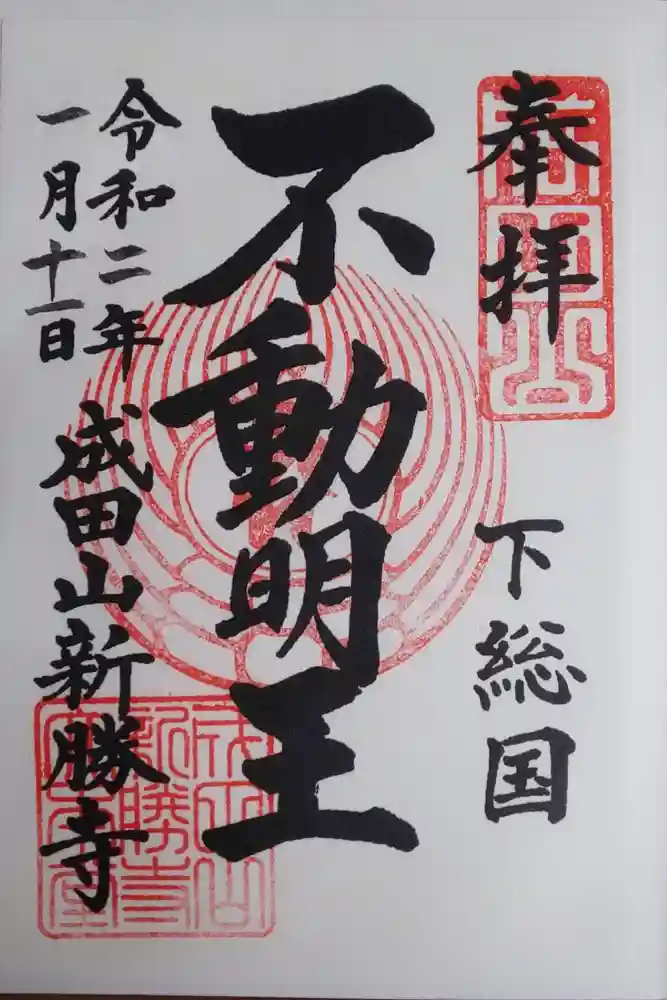 奉拝
下総国
不動明王
令和二年
一月十一日
成田山新勝寺